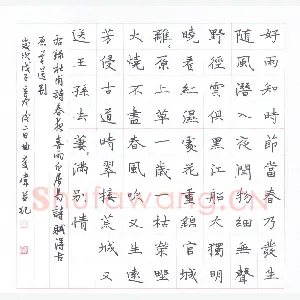 好雨知時節當春乃發生
隨風潛入夜潤物細無聲
野徑雲俱黑江船火獨明
曉看紅濕處花重錦官城
離〻原上草一歲一枯榮野
火燒不盡春風吹又生遠
芳侵古道晴翠接荒城又
送王孫去萋〻滿別情
錄杜甫詩春夜喜雨白居易詩賦得古
原草送別
歲次戊子
Shufawang.CN